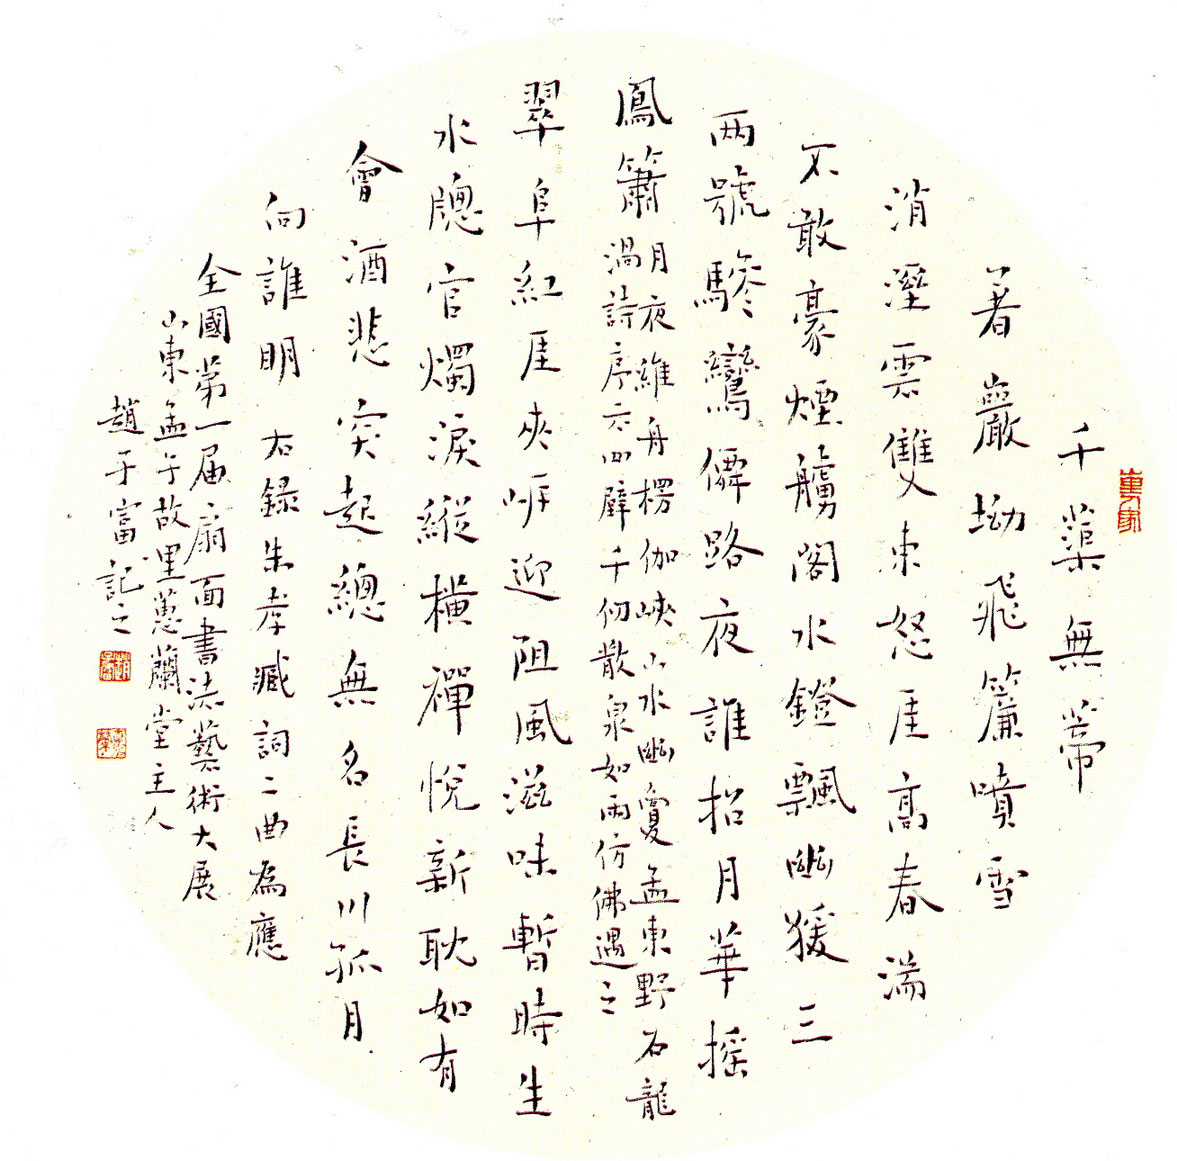 千蕖無蒂
著巖坳飛簾噴雪
消溼雲雙束怒厓高春湍
不敢豪煙艣閣水鐙飄幽猨三
兩號驂鸞僊路夜誰招月華搖
鳳簫
月夜維舟楞伽峽山水幽夐孟東野石龍
渦詩序六四壁千仞散泉如雨仿佛遇之
翠阜紅厓夾岸迎阻風滋味暫時生
水牕官燭淚縱橫禪悅新耽如有
會酒悲突起總無名長川孤月
向誰明右録朱孝臧詞二曲為應
全國第一届扇面書法藝術大展
山東孟子故里蕙蘭堂主人
趙于富記之